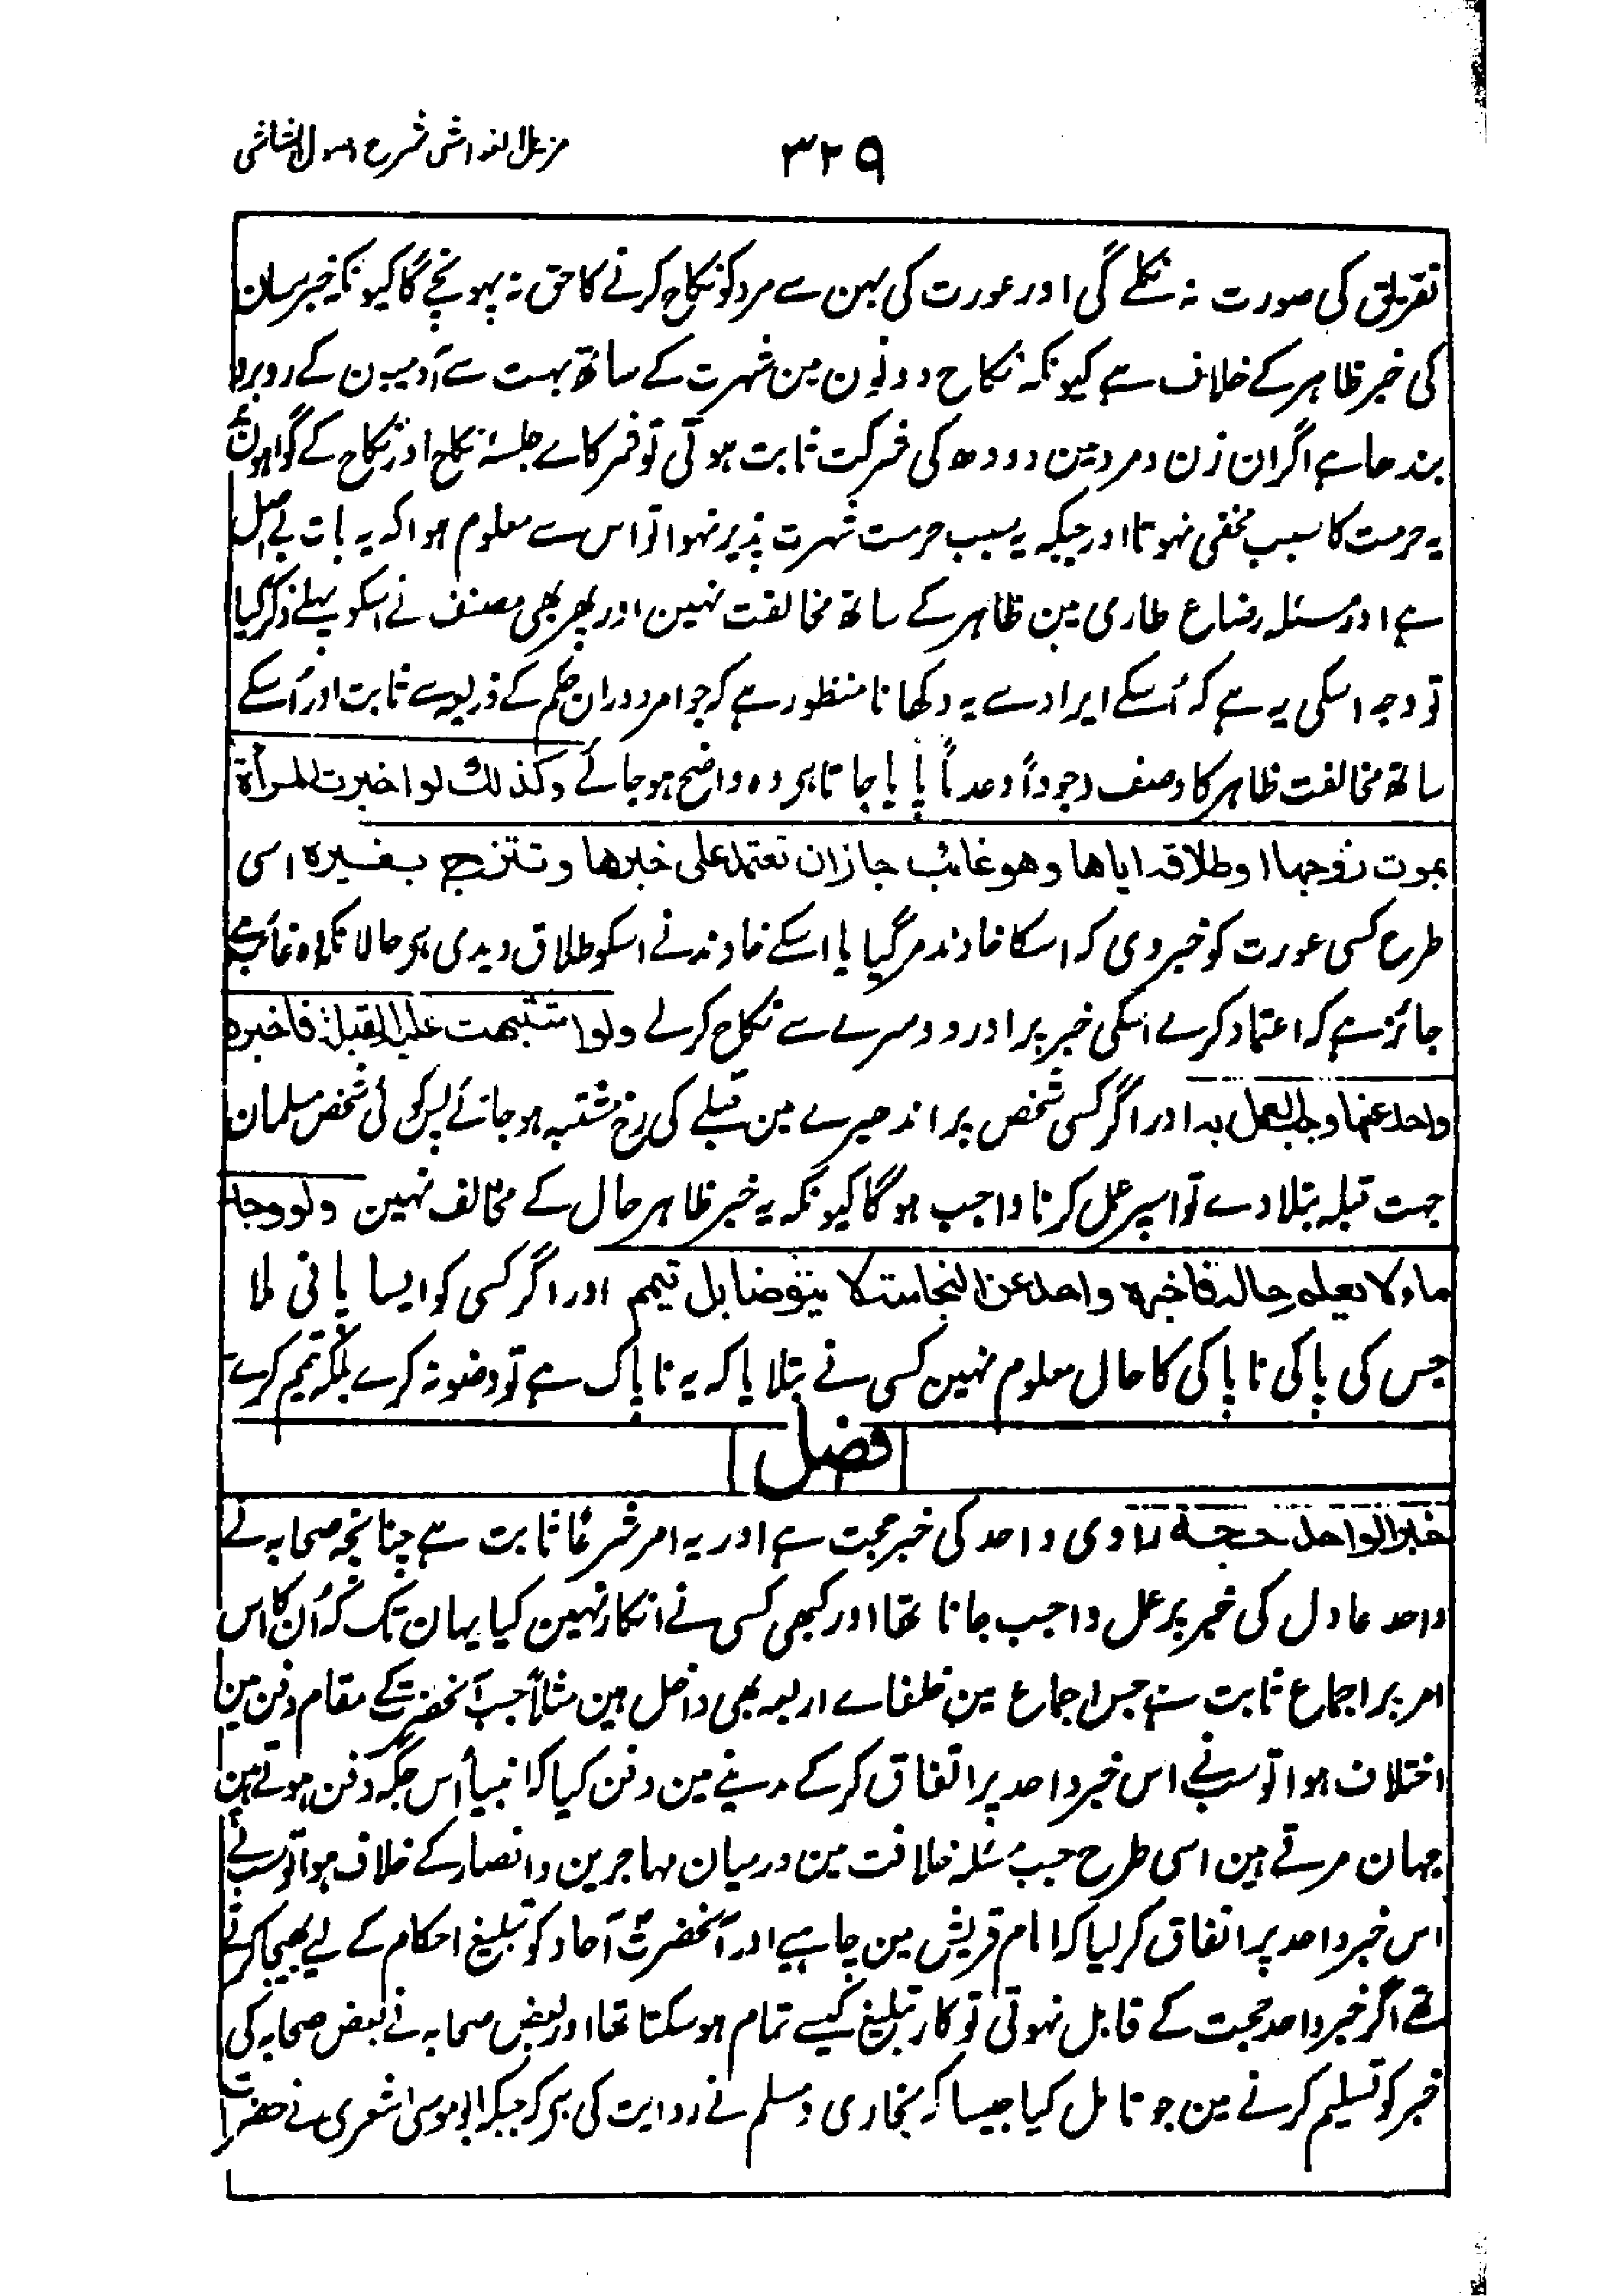 ۳۲۹ مزیل الغواشی شرح اصول الشاشی
تفریق کی صورت نہ نکلے گی اور عورت کی بہن سے مرد کو نکاح کرنے کا حق نہ پہونچے گا کیونکہ خبررسان
کی خبر ظاہر کے خلاف ہے کیونکہ نکاح دونون مین شہرت کے ساتھ بہت سے آدمیون کے روبرو
بندھا ہے اگر ان زن و مرد مین دودھ کی شرکت ثابت ہوتی تو شرکاے جلسۂ نکاح اور نکاح کے گواہون
یہ حرمت کا سبب مخفی نہوتا اور جبکہ یہ سبب حرمت شہرت پذیر نہوا تو اس سے معلوم ہوا کہ یہ بات بے اصل
ہے اور مسئلہ رضاع طاری مین ظاہر کے ساتھ مخالفت نہین اور پھر بھی مصنف نے اسکو پہلے ذکر کیا
تو وجہ اسکی یہ ہے کہ اُسکے ایراد سے یہ دکھانا منظور ہے کہ جو امر دوران حکم کے ذریعہ سے ثابت اور اُسکے
ساتھ مخالفت ظاہر کا وصف وجوداً وعدماً پایا جاتا ہر وہ واضح ہو جائے وکذلك لو اخبرت المرأة
بموت زوجها او طلاقه ایاها وهو غائب جاز ان تعتمد علی خبرها وتتزوج بغیره اسی
طرح کسی عورت کو خبر دی کہ اسکا خاوند مر گیا یا اسکے خاوند نے اسکو طلاق دیدی ہر حالانکہ وہ غائب ہے
جائز ہے کہ اعتماد کرے اسکی خبر پر اور دوسرے سے نکاح کرلے ولو اشتبهت علیه القبلة فاخبره
واحد عنها وجب العمل به اور اگر کسی شخص پر اندھیرے مین قبلے کی رخ مشتبہ ہو جائے پس کوئی شخص مسلمان
جہت قبلہ بتلا دے تو اسپر عمل کرنا واجب ہو گا کیونکہ یہ خبر ظاہر حال کے مخالف نہین ولو وجد
ماء لا یعلم حاله فاخبره واحد عن النجاسة لا یتوضأ بل تیمم اور اگر کسی کو ایسا پانی ملا
جس کی پاکی ناپاکی کا حال معلوم نہین کسی نے بتلایا کہ یہ ناپاک ہے تو وضو نہ کرے بلکہ تیمم کرے
فصل
خبر الواحد حجة راوی واحد کی خبر حجت ہے اور یہ امر شرعًا ثابت ہے چنانچہ صحابہ نے
واحد عادل کی خبر پر عمل واجب جانا تھا اور کبھی کسی نے انکار نہین کیا یہان تک کہ اُن کا اس
امر پر اجماع ثابت ہے جس اجماع مین خلفاے اربعہ بھی داخل ہین مثلاً جب آنحضرت کے مقام دفن مین
اختلاف ہوا تو سب نے اس خبر واحد پر اتفاق کر کے مدینے مین دفن کیا کہ انبیا اُس جگہ دفن ہوتے ہین
جہان مرتے ہین اسی طرح جب مسئلہ خلافت مین درمیان مہاجرین و انصار کے خلاف ہوا تو سب نے
اس خبر واحد پر اتفاق کر لیا کہ امام قریش مین چاہیے اور آنحضرت آحاد کو تبلیغ احکام کے لیے بھیجا کرتے
تھے اگر خبر واحد حجت کے قابل نہوتی تو کار تبلیغ کیسے تمام ہو سکتا تھا اور بعض صحابہ نے بعض صحابہ کی
خبر کو تسلیم کرنے مین جو تامل کیا جیسا کہ بخاری و مسلم نے روایت کی ہر کہ جبکہ ابو موسیٰ اشعری نے حضرت